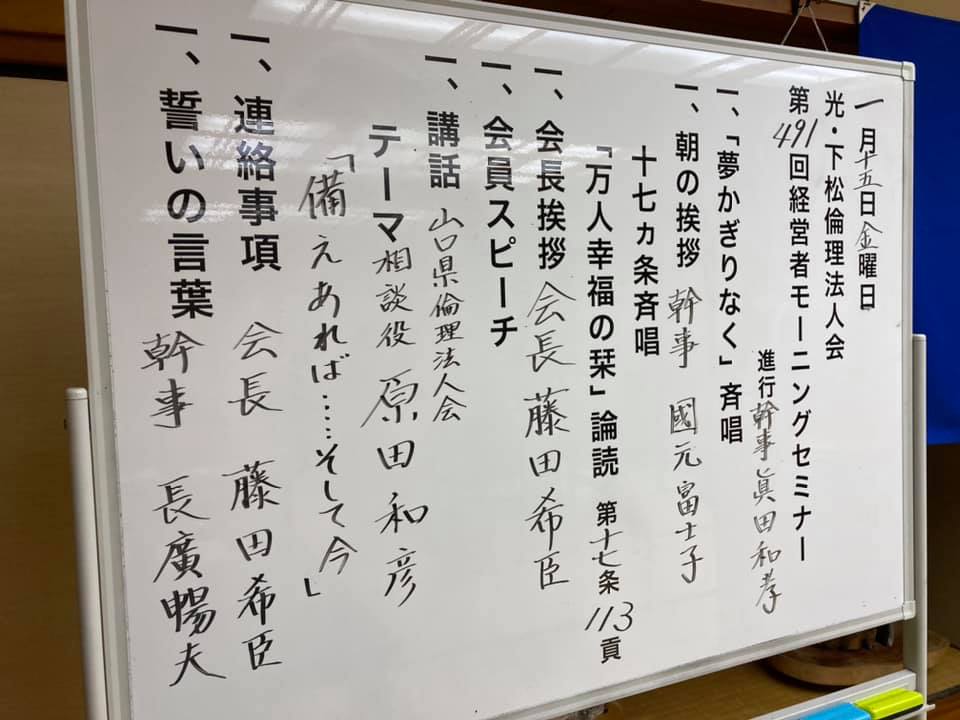 一月十五日金曜日
光・下松倫理法人会
第491回経営者モーニングセミナー
進行 幹事 眞田和孝
一、「夢かぎりなく」斉唱
一、朝の挨拶 幹事 國元富士子
十七ヵ条斉唱
「万人幸福の栞」論読 第十七条113貢
一、会長挨拶 会長 藤田希臣
一、会員スピーチ
一、講話 山口県倫理法人会
テーマ 相談役 原田和彦
「備えあれば……そして今」
一、連絡事項 会長 藤田希臣
一、誓いの言葉 幹事 長廣暢夫